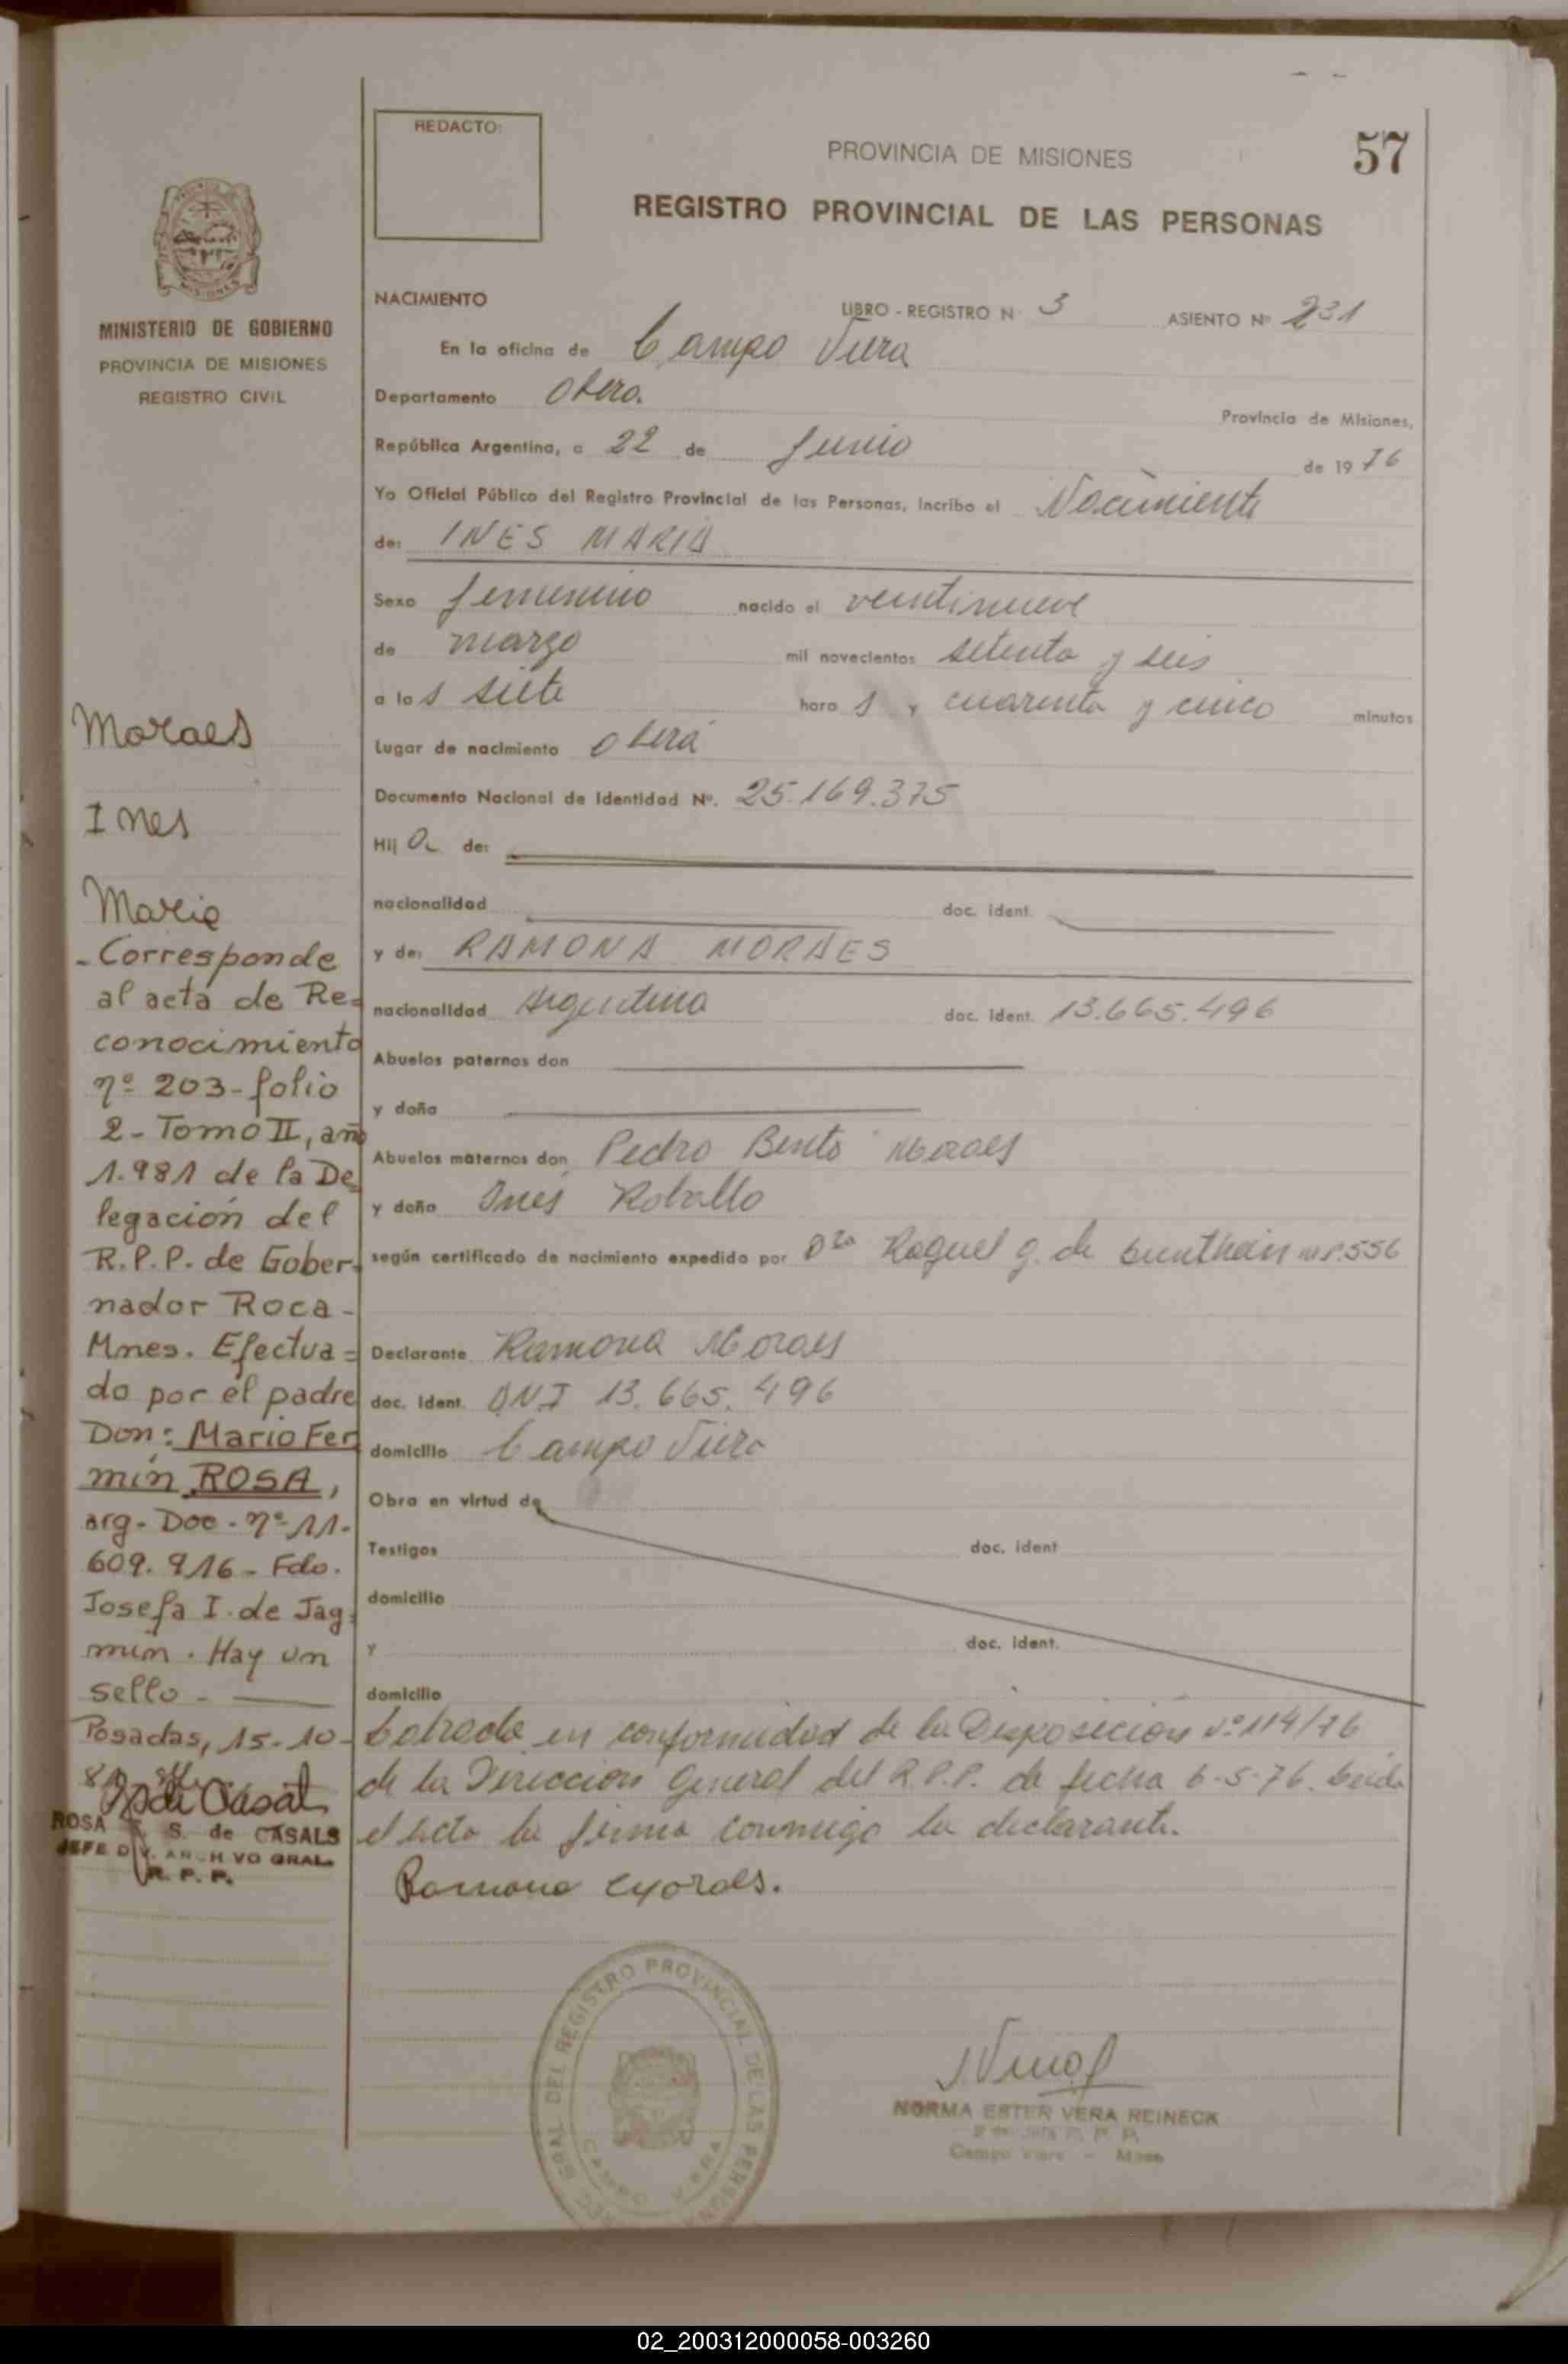 REDACTO:
PROVINCIA DE MISIONES
57
REGISTRO PROVINCIAL DE LAS PERSONAS
MINISTERIO DE GOBIERNO
PROVINCIA DE MISIONES
REGISTRO CIVIL
NACIMIENTO
LIBRO - REGISTRO N 3 ASIENTO Nº 231
En la oficina de Campo Viera
Departamento Obera. Provincia de Misiones,
República Argentina, a 22 de Junio de 1976
Yo Oficial Público del Registro Provincial de las Personas, incribo el Nacimiento
de: INES MARIA
Sexo femenino nacido el veintinueve
de marzo mil novecientos setenta y seis
a las siete horas y cuarenta y cinco minutos
Lugar de nacimiento Oberá
Documento Nacional de Identidad Nº. 25.169.375
Hija de:
nacionalidad doc. ident.
y de: RAMONA MORAES
nacionalidad Argentina doc. ident. 13.665.496
Abuelos paternos don
y doña
Abuelos maternos don Pedro Bento Moraes
y doña Inés Roballo
según certificado de nacimiento expedido por Dra Raquel G. de M.P.556
Declarante Ramona Moraes
doc. ident. D.N.I 13.665.496
domicilio Campo Viera
Obra en virtud de
Testigos doc. ident
domicilio
y doc. ident.
domicilio
Labrada en conformidad de la Disposición Nº 114/76
de la Dirección General del R.P.P. de fecha 6-5-76. Leída
el acta la firma conmigo la declarante.
Ramona Moraes.
Moraes
Ines
Maria
- Corresponde
al acta de Re=
conocimiento
nº 203-folio
2-Tomo II, año
1.981 de la De
legación del
R.P.P. de Gober-
nador Roca-
Mnes. Efectua=
do por el padre
Don: Mario Fer
mín ROSA,
arg-Doc-nº 11.
609.916-Fdo.
Josefa I. de Jag=
min. Hay un
sello-
Posadas, 15-10-
81
ROSA S. de CASALS
JEFE DIV. ARCHIVO GRAL.
R. P. P.
GRAL DEL REGISTRO PROVINCIAL DE LAS PERSON
CAMPO VIERA
NORMA ESTER VERA REINECK
R. P. P.
Campo Viera - Mnes
02_200312000058-003260